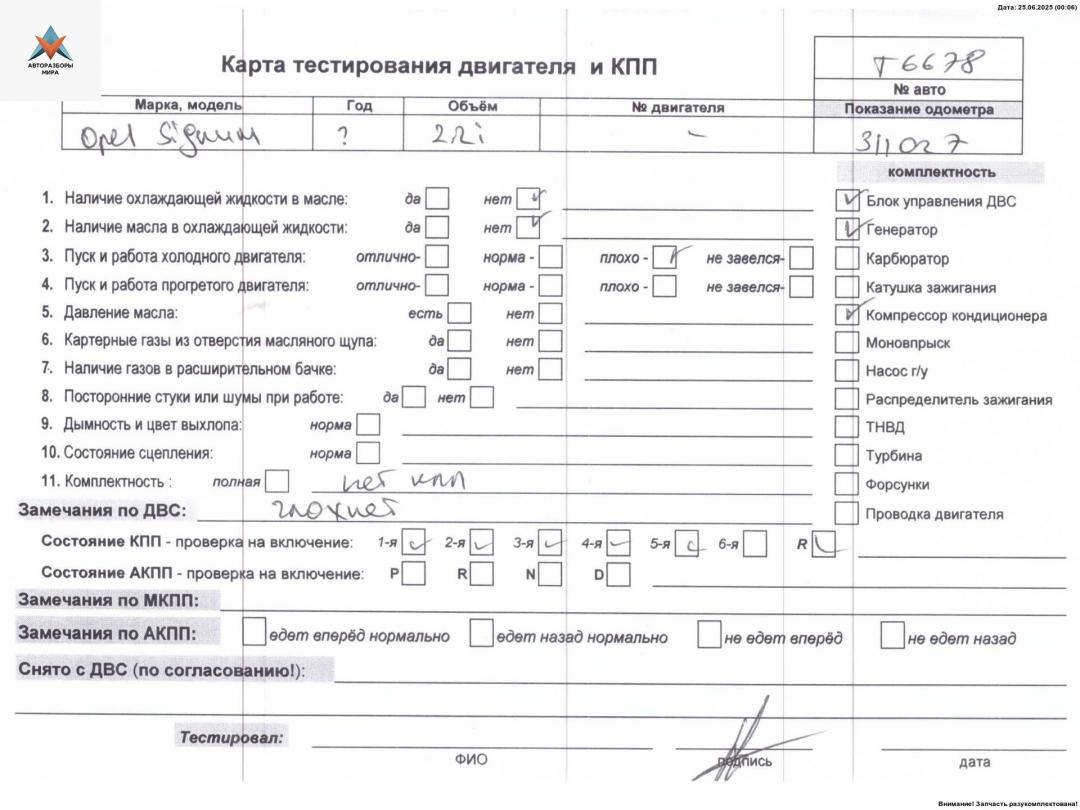 Дата: 25.06.2025 (00:06)
АВТОРАЗБОРЫ
МИРА
Карта тестирования двигателя и КПП
T6678
№ авто
Марка, модель Год Объём № двигателя Показание одометра
Opel Signum ? 2.2i – 311027
комплектность
1. Наличие охлаждающей жидкости в масле: да нет Блок управления ДВС
2. Наличие масла в охлаждающей жидкости: да нет Генератор
3. Пуск и работа холодного двигателя: отлично- норма - плохо - не завелся- Карбюратор
4. Пуск и работа прогретого двигателя: отлично- норма - плохо - не завелся- Катушка зажигания
5. Давление масла: есть нет Компрессор кондиционера
6. Картерные газы из отверстия масляного щупа: да нет Моновпрыск
7. Наличие газов в расширительном бачке: да нет Насос г/у
8. Посторонние стуки или шумы при работе: да нет Распределитель зажигания
9. Дымность и цвет выхлопа: норма ТНВД
10. Состояние сцепления: норма Турбина
11. Комплектность : полная нет кпп Форсунки
Замечания по ДВС: глохнет Проводка двигателя
Состояние КПП - проверка на включение: 1-я 2-я 3-я 4-я 5-я 6-я R
Состояние АКПП - проверка на включение: P R N D
Замечания по МКПП:
Замечания по АКПП: едет вперёд нормально едет назад нормально не едет вперёд не едет назад
Снято с ДВС (по согласованию!):
Тестировал:
ФИО подпись дата
Внимание! Запчасть разукомплектована!